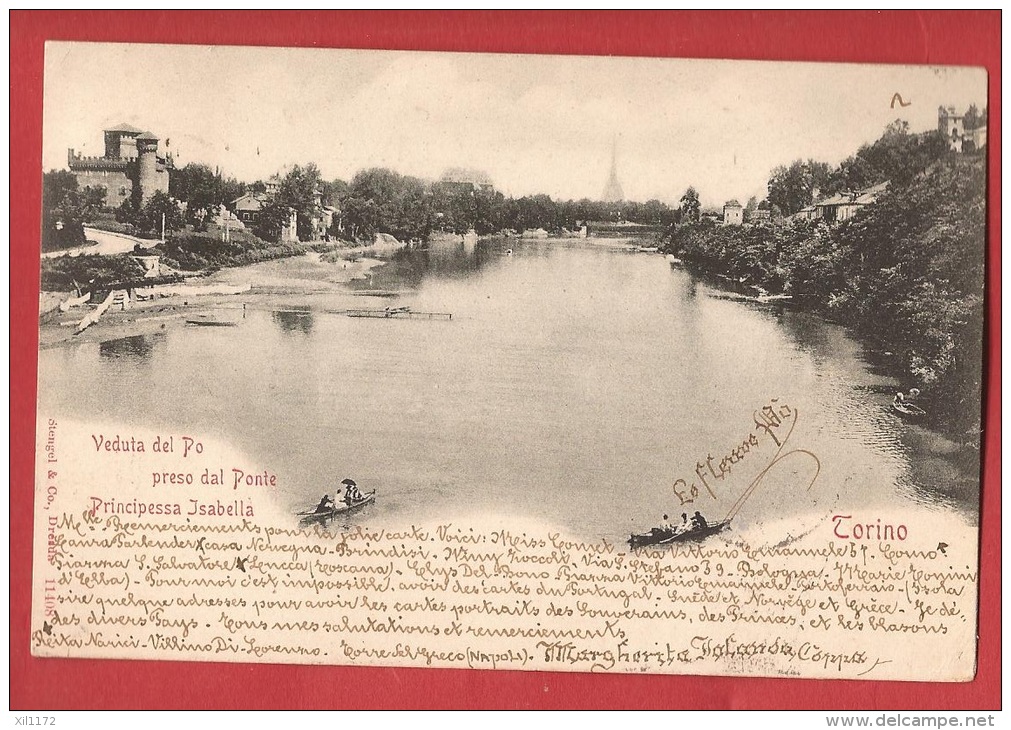 Le fleuve Pô
Veduta del Po
preso dal Ponte
Principessa Isabella
Torino
Stengel & Co., Dresde 11408
Mlle Remerciements pour la jolie carte. Voici: Miss Via Vittorio Emanuele 57, Como
Laura casa Nervegna - Brindisi. Via S. Stefano 39 - Bologna,
Piazza S. Salvatore Lucca (Toscana) - Elys Del-Bono Piazza Vittorio Emanuele - Portoferraio - (Isola
d'Elba) - Pour moi c'est impossible, avoir des cartes du Portugal - Suède et Norvège et Grèce - Je dé-
sire quelque adresses pour avoir les cartes portraits des Souverains, des Princes, et les blasons
des divers Pays - Tous mes salutations et remerciements
Rita Narici - Villino Di-Lorenzo - Torre del Greco (NAPOLI). Margherita Jolanda Coppa
xil1172
www.delcampe.net